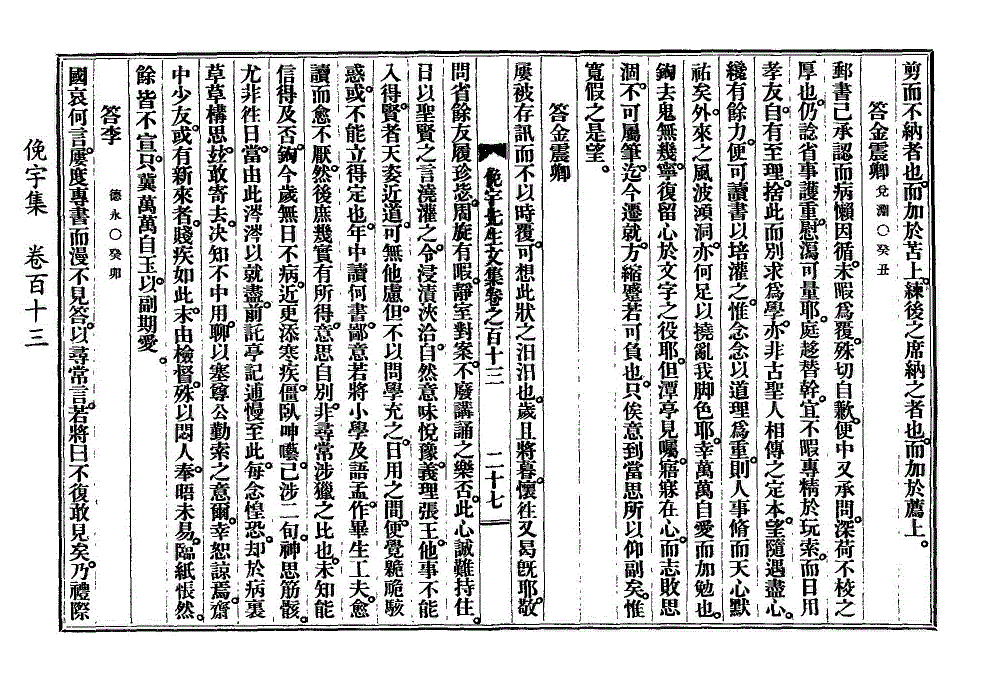 剪而不納者也。而加於苫上。練後之席納之者也。而加於薦上。
答金震卿 兌淵○癸丑
郵書已承認而病懶因循。未暇爲覆。殊切自歉。便中又承問。深荷不校之
厚也。仍諗省事護重。慰瀉可量耶。庭趍替幹。宜不暇專精於玩索。而日用
孝友。自有至理。捨此而別求爲學。亦非古聖人相傳之定本。望隨遇盡心。
纔有餘力。便可讀書以培灌之。惟念念以道理爲重。則人事脩而天心默
祐矣。外來之風波澒洞。亦何足以撓亂我脚色耶。幸萬萬自愛而加勉也。
鉤去鬼無幾。寧復留心於文字之役耶。但潭亭見囑。寤寐在心。而志敗思
涸。不可屬筆。迄今遷就。方縮蹙若可負也。只俟意到當思所以仰副矣。惟
寬假之是望。
答金震卿
屢被存訊而不以時覆。可想此狀之汨汨也。歲且將暮。懷往又曷旣耶。敬
俛宇先生文集卷之百十三 二十七
問省餘友履珍毖。周旋有暇。靜室對案。不廢講誦之樂否。此心誠難持住。
日以聖賢之言澆灌之。令浸漬浹洽。自然意味悅豫。義理張王。他事不能
入得。賢者天姿近道。可無他慮。但不以問學充之。日用之間。便覺臲卼駭
惑。或不能立得定也。年中讀何書。鄙意若將小學及語孟。作畢生工夫。愈
讀而愈不厭。然後庶幾實有所得。意思自別。非尋常涉獵之比也。未知能
信得及否。鉤今歲無日不病。近更添寒疾。僵臥呻囈。已涉二旬。神思筋骸。
尤非往日。當由此涔涔以就盡。前託亭記逋慢至此。每念惶恐。却於病裏
草草構思。玆敢寄去。决知不中用。聊以塞尊公勤索之意爾。幸恕諒焉。齋
中少友。或有新來者。賤疾如此。末由檢督。殊以悶人。奉晤未易。臨紙悵然。
餘皆不宣。只冀萬萬自玉。以副期愛。
答李 德永○癸卯
國哀何言。屢度專書而漫不見答。以尋常言。若將曰不復敢見矣。乃禮際
俛宇集 卷百十三